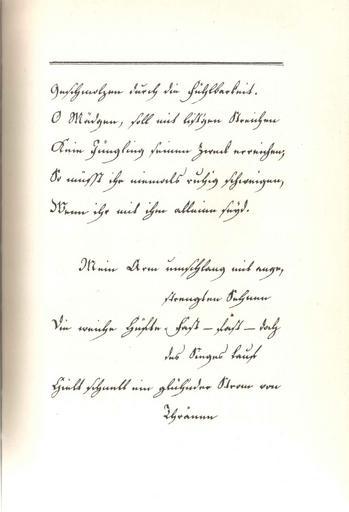 Geschmolzen durch die Fühlbarkeit.
O Mädgen, soll mit list'gen Streichen
Kein Jüngling seinen Zweck erreichen,
So müßt ihr niemals ruhig schweigen,
Wenn ihr mit ihm alleine seyd.
Mein Arm umschlang mit ange,
strengten Sehnen
Die weiche Hüfte. Fast – fast – doch
des Sieges Lauf
Hielt schnell ein glühnder Strom von
Thränen